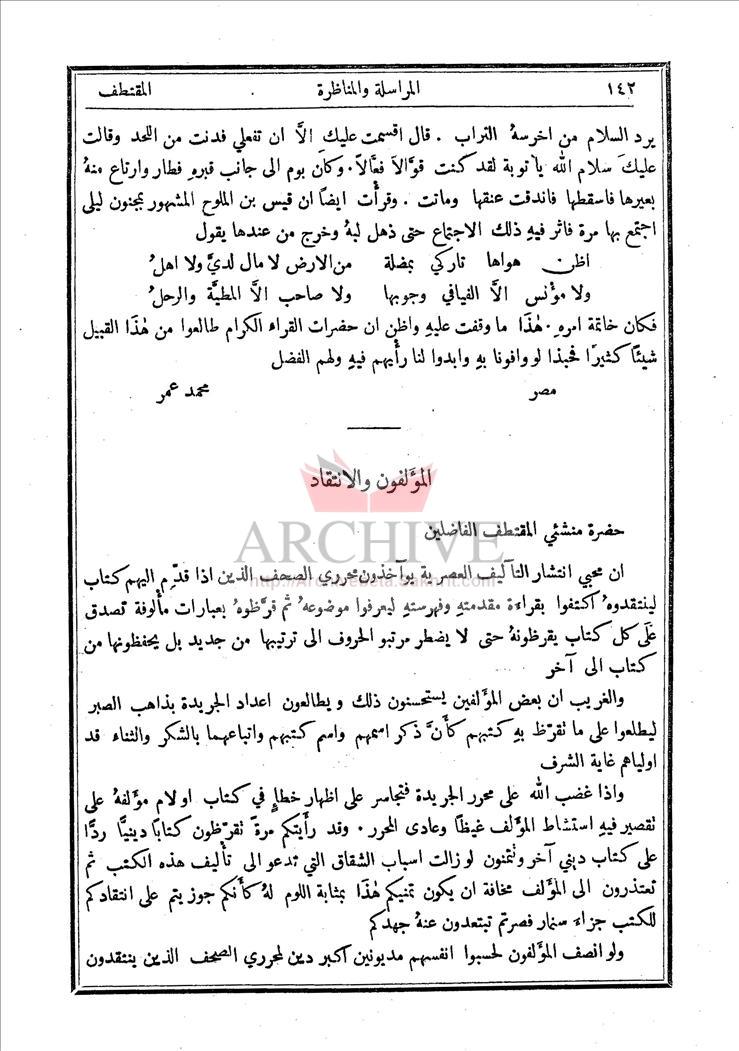 ١٤٢ المراسلة والمناظرة المقتطف
يرد السلام من اخرسهُ التراب . قال اقسمت عليك الاَّ ان تفعلي فدنت من اللحد وقالت
عليكَ سلام الله يا توبة لقد كنت قوَّالاً فعَّالاً . وكان بوم الى جانب قبرهِ فطار وارتاع منهُ
بعيرها فاسقطها فاندقت عنقها وماتت . وقرأْت ايضاً ان قيس بن الملوح المشهور بمجنون ليلى
اجتمع بها مرة فاثر فيهِ ذلك الاجتماع حتى ذهل لبهُ وخرج من عندها يقول
اظن هواها تاركي بمضلة من الارض لا مال لديَّ ولا اهلُ
ولا مؤْنس الاَّ الفيافي وجوبها ولا صاحب الاَّ المطيَّة والرحلُ
فكان خاتمة امرهِ . هٰذَا ما وقفت عليهِ واظن ان حضرات القراء الكرام طالعوا من هٰذَا القبيل
شيئًا كثيرًا فحبذا لو وافونا بهِ وابدوا لنا رأْيهم فيهِ ولهم الفضل
مصر محمد عمر
المؤَلفون والانتقاد
حضرة منشئي المقتطف الفاضلين
ARCHIVE
ان محبي انتشار التآليف العصرية يوآخذون محرري الصحف الذين اذا قدّم اليهم كتاب
لينتقدوهُ اكتفوا بقراءة مقدمتهِ وفهرستهِ ليعرفوا موضوعهُ ثم قرَّظوهُ بعبارات مأْلوفة تصدق
عَلَى كل كتاب يقرظونهُ حتى لا يضطر مرتبو الحروف الى ترتيبها من جديد بل يحفظونها من
كتاب الى آخر
والغريب ان بعض المؤَلفين يستحسنون ذلك ويطالعون اعداد الجريدة بذاهب الصبر
ليطلعوا على ما تقرَّظ بهِ كتبهم كأَنَّ ذكر اسمهم واسم كتبهم واتباعهما بالشكر والثناء قد
اولياهم غاية الشرف
واذا غضب الله على محرر الجريدة فتجاسر على اظهار خطاءٍ في كتاب او لام مؤَلفهُ على
تقصير فيهِ استشاط المؤَلف غيظًا وعادى المحرر . وقد رأَيتكم مرةً تقرّظون كتابًا دينيًّا ردًّا
على كتاب ديني آخر وتتمنون لو زالت اسباب الشقاق التي تدعو الى تأْليف هذه الكتب ثم
تعتذرون الى المؤَلف مخافة ان يكون تمنيكم هٰذَا بمثابة اللوم لهُ كأَنكم جوزيتم على انتقادكم
للكتب جزاء سنمار فصرتم تبتعدون عنهُ جهدكم
ولو انصف المؤَلفون لحسبوا انفسهم مديونين اكبر دين لمحرري الصحف الذين ينتقدون